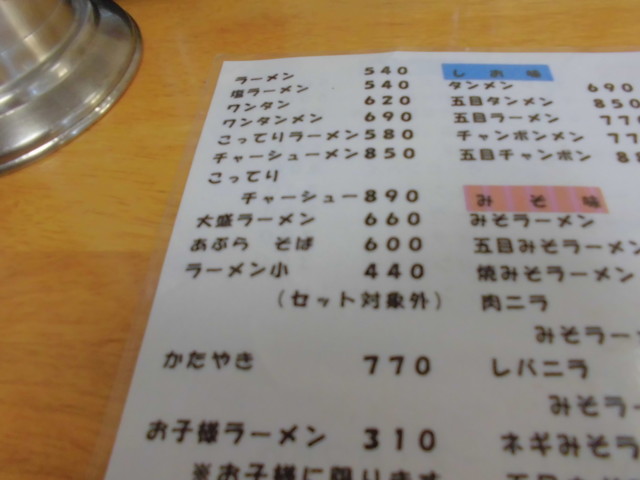 ラーメン 540
塩ラーメン 540
ワンタン 620
ワンタンメン 690
こってりラーメン 580
チャーシューメン 850
こってり
チャーシュー 890
大盛ラーメン 660
あぶら そば 600
ラーメン小 440
(セット対象外)
かたやき 770
お子様ラーメン 310
※お子様に限ります
しお味
タンメン 690
五目タンメン 850
五目ラーメン 770
チャンポンメン 77
五目チャンポン 8
みそ味
みそラーメン
五目みそラーメン
焼みそラーメン
肉ニラ
みそラー
レバニラ
みそラー
ネギみそラ